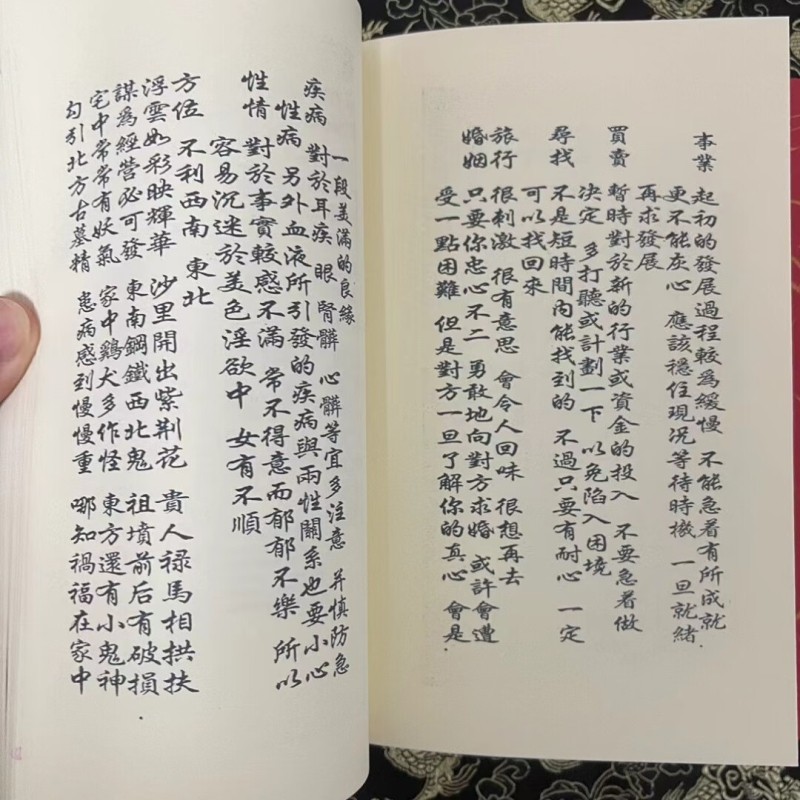 事業 起初的發展過程較為緩慢 不能急着有所成就
更不能灰心 應該穩住現況等待時機 一旦就緒
再求發展
買賣 暫時對於新的行業或資金的投入 不要急着做
決定 多打聽或計劃一下 以免陷入困境
尋找 不是短時間內能找到的 不過只要有耐心 一定
可以找回來
旅行 很刺激 很有意思 會令人回味 很想再去
婚姻 只要你忠心不二 勇敢地向對方求婚 或許會遭
受一點困難 但是對方一旦了解你的真心 會是
一段美滿的良緣
疾病 對於耳疾 眼 腎髒 心髒等宜多注意 并慎防急
性病 另外血液所引發的疾病與兩性關系也要小心
性情 對於事實較感不滿 常不得意而郁郁不樂 所以
容易沉迷於美色淫欲中 女有不順
方位 不利西南 東北
浮雲如彩映輝華 沙里開出紫荆花 貴人禄馬相拱扶
謀為經營必可發 東南鋼鐵西北鬼 祖墳前后有破損
宅中常常有妖氣 家中鷄犬多作怪 東方還有小鬼神
勾引北方古墓精 患病感到慢慢重 哪知禍福在家中